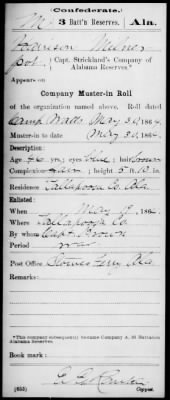 (Confederate.)
M 3 Batt'n Reserves. Ala.
Harrison
Capt. Strickland's Company of
Alabama Reserves.*
Appears on
Company Muster-in Roll
of the organization named above. Roll dated
Camp Watts, May 30, 1864.
Muster-in to date May 30, 1864.
Description:
Age 46 yrs.; eyes blue; hair brown
Complexion ; height 5 ft. 10 in.
Residence Tallapoosa Co. Ala
Enlisted:
When May 9, 1864.
Where Tallapoosa Co.
By whom Capt. Brown
Period war
Post Office Ferry, Ala
Remarks:
*This company subsequently became Company A, 63 Battalion
Alabama Reserves.
Book mark:
(653) Copyist.